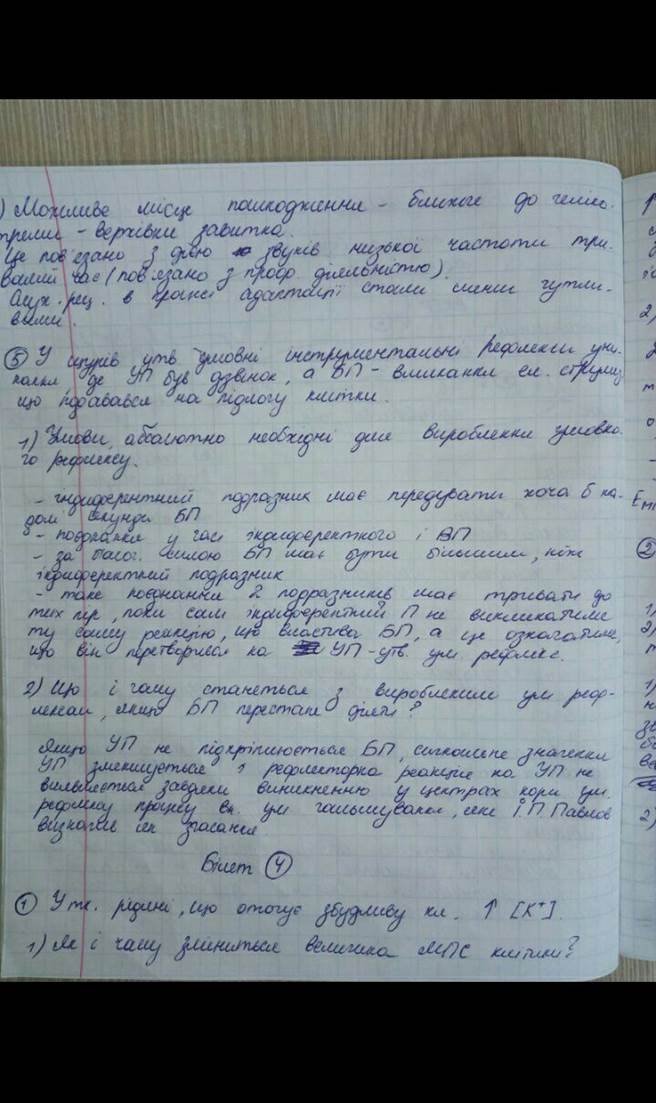 ) Можливе місце пошкодження - ближче до геліко-
треми - верхівки завитка.
Це пов'язано з дією звуків низької частоти три-
валий час (пов'язано з проф. діяльністю).
Слух. рец. в процесі адаптації стали менш чутли-
вими.
⑤ У щурів утв. умовні інструментальні рефлекси уни-
кання де УП був дзвінок, а БП - вмикання ел. струму,
що подавався на підлогу клітки.
1) Умови, абсолютно необхідні для вироблення умовно-
го рефлексу.
- індиферентний подразник має передувати хоча б на
долі секунди БП
- поєднання у часі індиферентного і БП
- за біолог. силою БП має бути більшим, ніж
індиферентний подразник
- таке поєднання 2 подразників має тривати до
тих пір, поки сам індиферентний П не викликатиме
ту саму реакцію, що властива БП, а це означатиме,
що він перетворився на УП - утв. ум. рефлекс.
2) Що і чому станеться з виробленим ум. реф-
лексом, якщо БП перестане діяти?
Якщо УП не підкріплюється БП, сигнальне значення
УП зменшується і рефлекторна реакція на УП не
виявляється завдяки виникненню у центрах кори ум.
рефлексу процесу вн. ум гальмування, яке І.П. Павлов
визначив як згасання
Білет ④
① У тк. рідині, що оточує збудливу кл. ↑ [K⁺].
1) Як і чому зміниться величина МПС клітини?
2)
2)
E
②
1)
2)
1)
2)